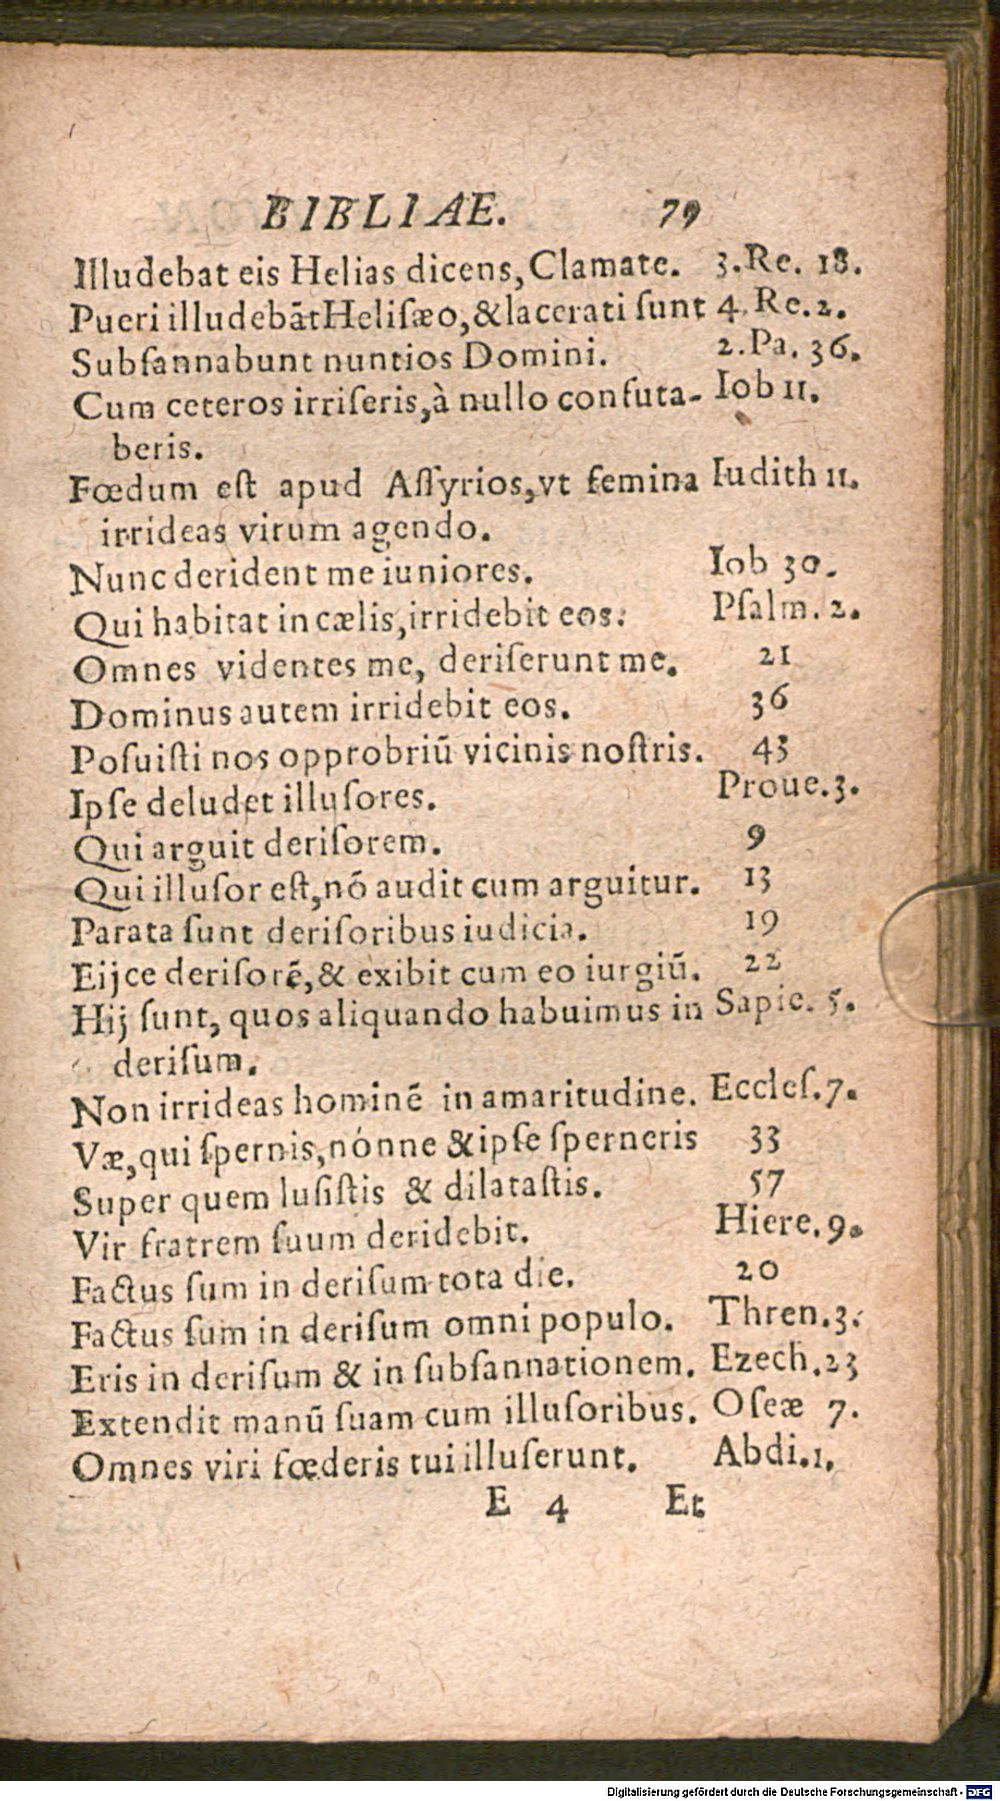 BIBLIAE. 79
Illudebat eis Helias dicens, Clamate. 3.Re. 18.
Pueri illudebāt Helisæo, & lacerati sunt 4.Re.2.
Subsannabunt nuntios Domini. 2.Pa. 36.
Cum ceteros irriseris, à nullo confuta- Iob 11.
beris.
Fœdum est apud Assyrios, vt femina Iudith 11.
irrideas virum agendo.
Nunc derident me iuniores. Iob 30.
Qui habitat in cælis, irridebit eos. Psalm. 2.
Omnes videntes me, deriserunt me. 21
Dominus autem irridebit eos. 36
Posuisti nos opprobriū vicinis nostris. 43
Ipse deludet illusores. Proue.3.
Qui arguit derisorem. 9
Qui illusor est, nō audit cum arguitur. 13
Parata sunt derisoribus iudicia. 19
Eijce derisorē, & exibit cum eo iurgiū. 22
Hij sunt, quos aliquando habuimus in Sapie. 5.
derisum.
Non irrideas hominē in amaritudine. Eccles.7.
Væ, qui spernis, nónne & ipse sperneris 33
Super quem lusistis & dilatastis. 57
Vir fratrem suum deridebit. Hiere.9.
Factus sum in derisum tota die. 20
Factus sum in derisum omni populo. Thren.3.
Eris in derisum & in subsannationem. Ezech.23
Extendit manū suam cum illusoribus. Oseæ 7.
Omnes viri fœderis tui illuserunt. Abdi.1.
E 4 Et
Digitalisierung gefördert durch die Deutsche Forschungsgemeinschaft - DFG